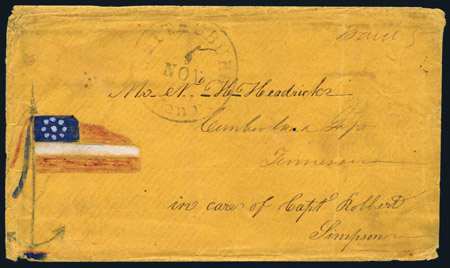 Paid 5
NOV
Mr. N. H. Headricks
Cumberland Gap
Tennessee
in care of Capt Robbert
Simpson